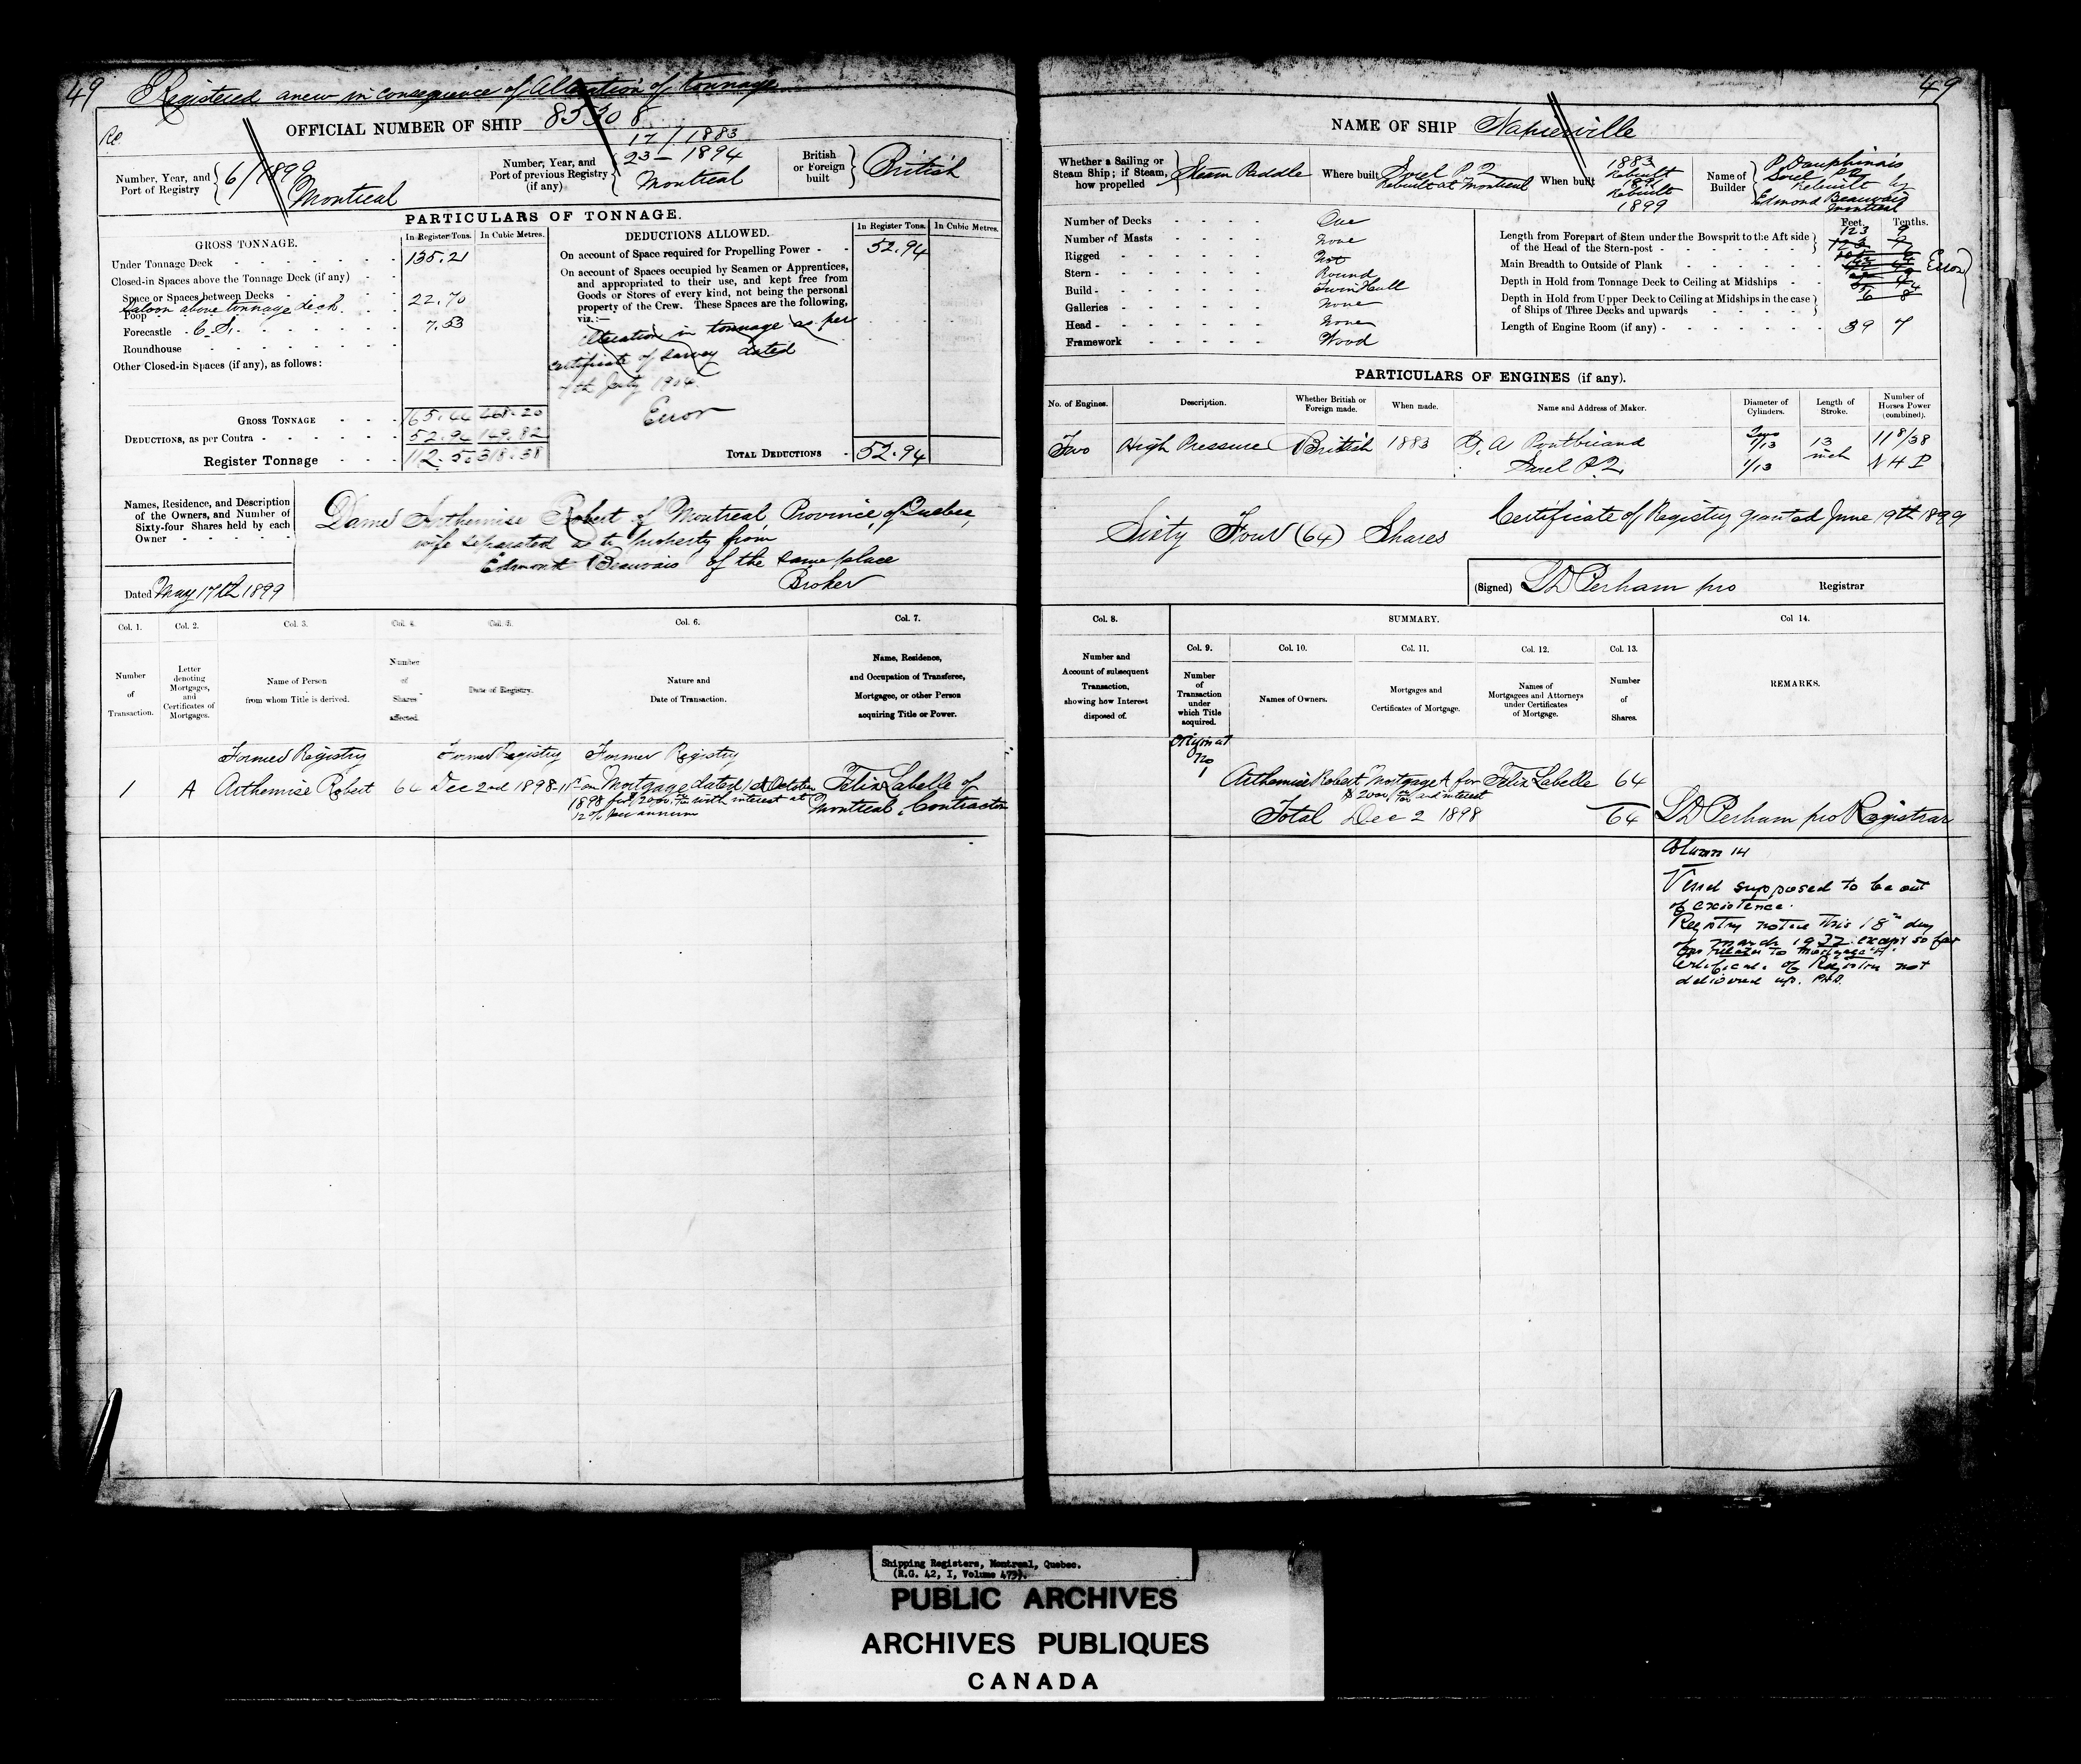 49 Registered anew in consequence of Alteration of tonnage
OFFICIAL NUMBER OF SHIP 85308
Number, Year, and Port of Registry 6/1899 Montreal
Number, Year, and Port of previous Registry (if any) 17/1883
23 - 1894
Montreal
British or Foreign built British
PARTICULARS OF TONNAGE.
GROSS TONNAGE. In Register Tons. In Cubic Metres.
Under Tonnage Deck 135.21
Closed-in Spaces above the Tonnage Deck (if any)
Space or Spaces between Decks
Saloon above tonnage deck 22.70
Poop
Forecastle C. S. 7.53
Roundhouse
Other Closed-in Spaces (if any), as follows:
GROSS TONNAGE 165.44 468.20
DEDUCTIONS, as per Contra 52.94 149.82
Register Tonnage 112.50 318.38
DEDUCTIONS ALLOWED. In Register Tons. In Cubic Metres.
On account of Space required for Propelling Power 52.94
On account of Spaces occupied by Seamen or Apprentices,
and appropriated to their use, and kept free from
Goods or Stores of every kind, not being the personal
property of the Crew. These Spaces are the following,
viz.:—
Alteration in tonnage as per
certificate of survey dated
Error
TOTAL DEDUCTIONS 52.94
Names, Residence, and Description
of the Owners, and Number of
Sixty-four Shares held by each
Owner
Dame Arthemise Robert of Montreal, Province of Quebec,
wife separated as to property from
Edmond Beauvais of the same place
Broker
Dated May 17th 1899
Col. 1. Col. 2. Col. 3. Col. 4. Col. 5. Col. 6. Col. 7.
Number of Transaction.
Letter denoting Mortgages, and Certificates of Mortgages.
Name of Person from whom Title is derived.
Number of Shares affected.
Date of Registry.
Nature and Date of Transaction.
Name, Residence, and Occupation of Transferee, Mortgagee, or other Person acquiring Title or Power.
Former Registry Former Registry Former Registry
1 A Arthemise Robert 64 Dec 2nd 1898 Mortgage dated 1st October Felix Labelle of
1898 for $2000 with interest at Montreal, Contractor
12% per annum
49
NAME OF SHIP Napierville
Whether a Sailing or Steam Ship; if Steam, how propelled Steam Paddle
Where built Sorel P.Q.
Rebuilt at Montreal
When built 1883
Rebuilt
Rebuilt
1899
Name of Builder P. Dauphinais
Sorel P.Q.
Rebuilt by
Edmond Beauvais
Montreal
Number of Decks One
Number of Masts None
Rigged Not
Stern Round
Build Twin Hull
Galleries None
Head None
Framework Wood
Feet. Tenths.
Length from Forepart of Stem under the Bowsprit to the Aft side of the Head of the Stern-post 123 9
Main Breadth to Outside of Plank
Depth in Hold from Tonnage Deck to Ceiling at Midships
Depth in Hold from Upper Deck to Ceiling at Midships in the case of Ships of Three Decks and upwards
Error
Length of Engine Room (if any) 39 7
PARTICULARS OF ENGINES (if any).
No. of Engines. Description. Whether British or Foreign made. When made. Name and Address of Maker. Diameter of Cylinders. Length of Stroke. Number of Horses Power (combined).
Two High Pressure British 1883 G. A. Pontbriand
Sorel P.Q.
13 inch
N H P
Sixty Four (64) Shares
Certificate of Registry granted June 19th 1899
(Signed) S D Perham pro Registrar
Col. 8. SUMMARY. Col 14.
Col. 9. Col. 10. Col. 11. Col. 12. Col. 13.
Number and Account of subsequent Transaction, showing how Interest disposed of.
Number of Transaction under which Title acquired.
Names of Owners.
Mortgages and Certificates of Mortgage.
Names of Mortgagees and Attorneys under Certificates of Mortgage.
Number of Shares.
REMARKS.
Original
No
1 Arthemise Robert Mortgage A for Felix Labelle 64
$2000 and interest
Total Dec 2 1898 64 S D Perham pro Registrar
Column 14
Vessel supposed to be out
of existence.
Registry closed this 18th day
of March 1932 except so far
as relates to Mortgage "A".
Certificate of Registry not
delivered up.
Shipping Registers, Montreal, Quebec.
(R.G. 42, I, Volume 473).
PUBLIC ARCHIVES
ARCHIVES PUBLIQUES
CANADA